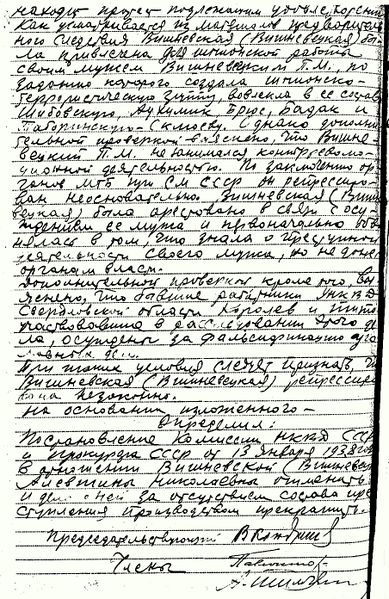 находит протест подлежащим удовлетворению
Как усматривается из материалов предваритель
ного следствия Вишневская (Вишневецкая) бы-
ла привлечена для шпионской работы
своим мужем Вишневецким П.М. по
заданию которого создала шпионско-
террористическую группу, вовлекла в ее состав
Брюс, Бадак и
Однако дополни
тельной проверкой выяснено, что Вишне-
вецкий П.М. не занимался контрреволю-
ционной деятельностью. По заключению ор-
ганов при СМ СССР он репрессиро-
ван неосновательно. Вишневская (Вишне
вецкая) была арестована в связи с осу-
ждением ее мужа и первоначально
в том, что знала о преступной
деятельности своего мужа, но не донес
органам власти.
Дополнительной проверкой кроме того, вы
яснено, что бывшие работники УНКВД
Свердловской области Королев и
участвовавшие в расследовании этого де
ла, осуждены за фальсификацию уго
ловных дел.
При таких условиях следует признать, что
Вишневская (Вишневецкая) репрессиро
вана незаконно.
На основании изложенного —
Определил:
Постановление Комиссии НКВД СССР
и прокурора СССР от 13 января 1938 года
в отношении Вишневской (Вишневец
Николаевны отменить
и дело о ней за отсутствием состава пре
ступления производством прекратить.
Председательствующий
Члены